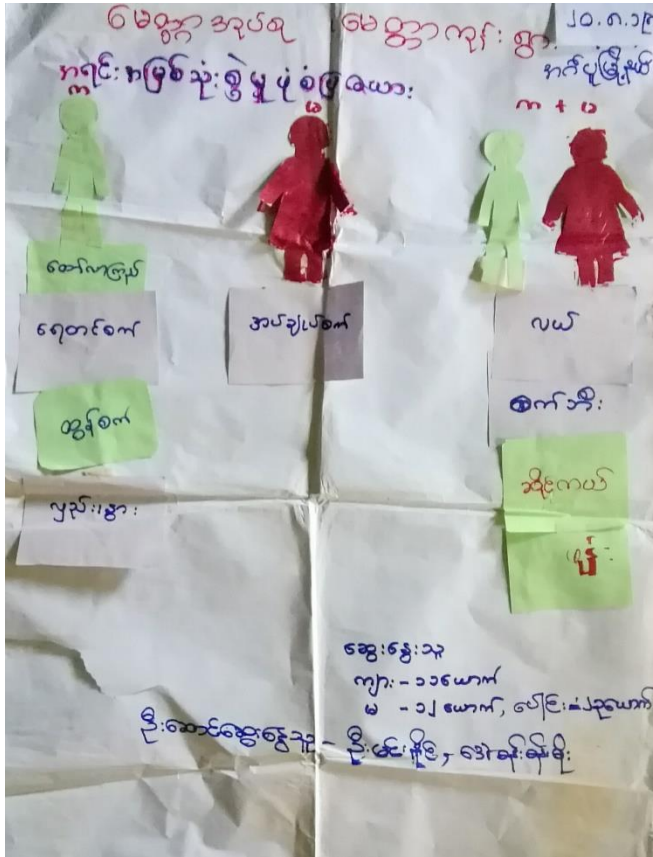 မေတ္တာအုပ်စု မေတ္တာကုန်းရွာ ၂၀.၈.၁၉
အရင်းအမြစ်သုံးစွဲမှုပုံစံပြဇယား အင်္ဂပူမြို့နယ်
ကျား မ ကျား + မ
ထော်လာဂျီ
ရေတင်စက် အပ်ချုပ်စက် လယ်
စက်ဘီး
ထွန်စက်
ဆိုင်ကယ်
လှည်း၊နွား
ဖုန်း
ဆွေးနွေးသူ
ကျား - ၁၁ယောက်
မ - ၁၂ယောက်, ပေါင်း=၂၃ယောက်
ဦးဆောင်ဆွေးနွေးသူ - ဦးမင်းနိုင်, ဒေါ်ခိုင်ခိုင်စိုး